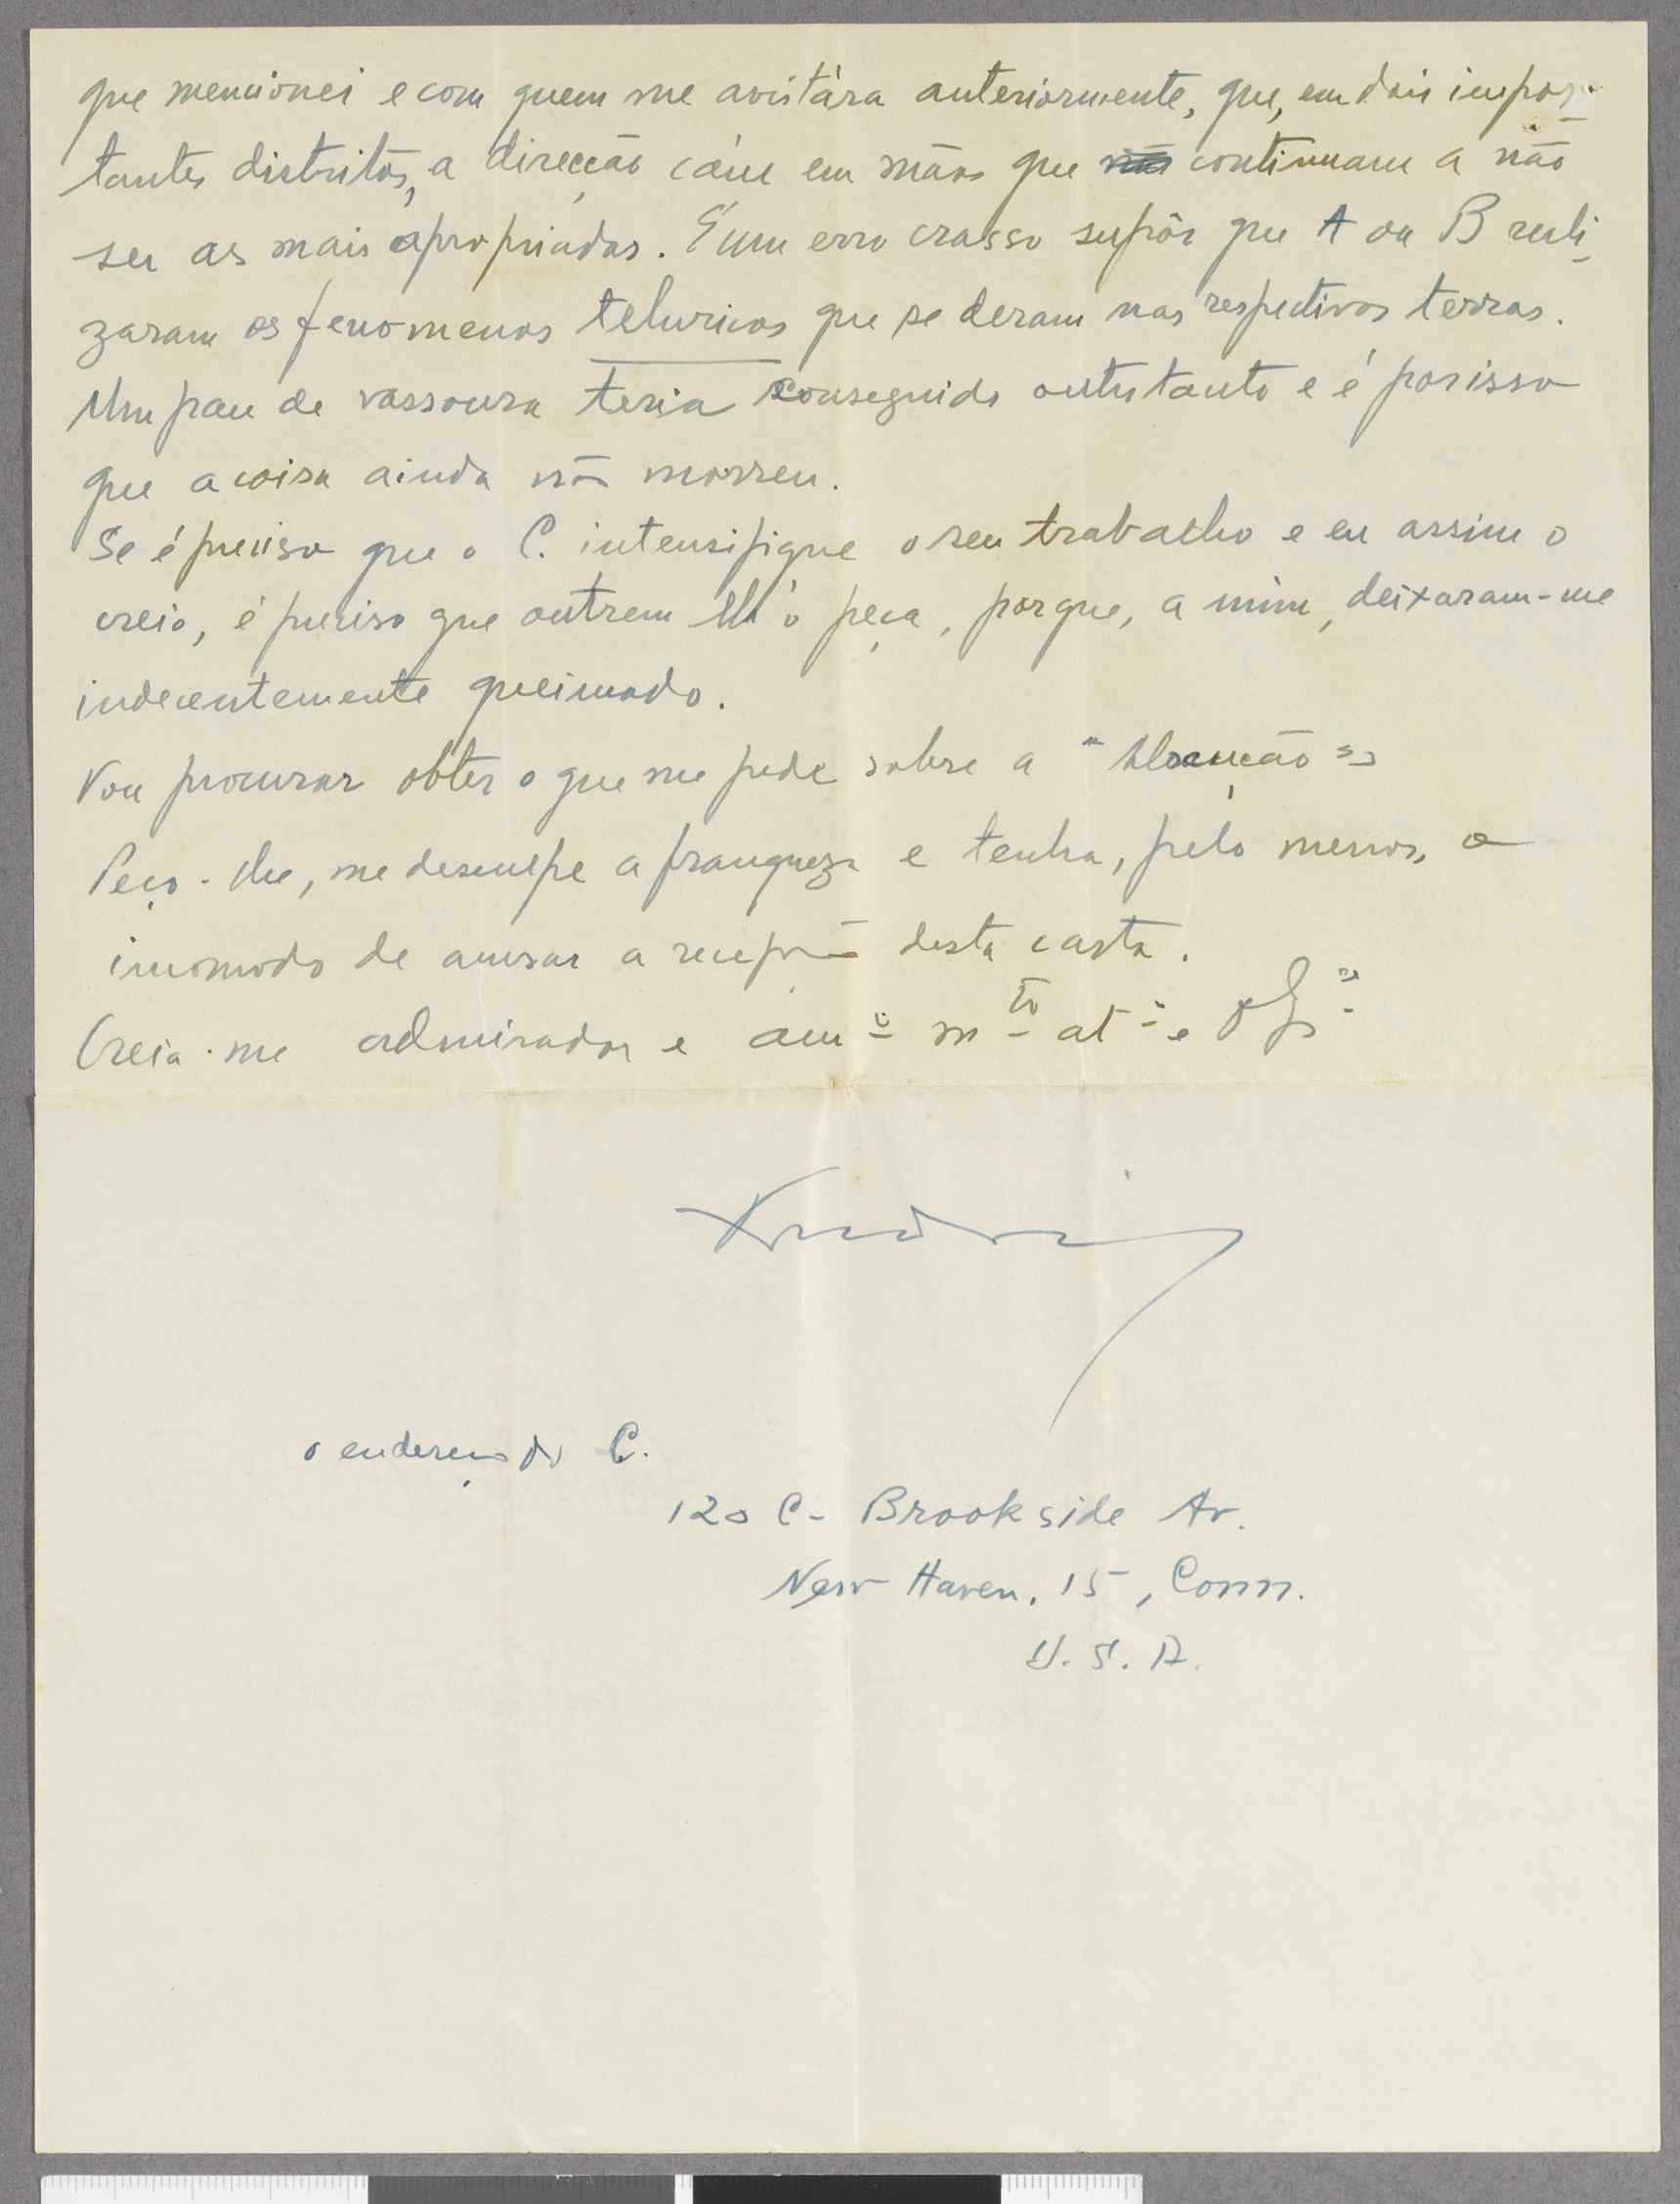 que mencionei e com quem me avistára anteriormente, que, em dois impor-
tantes distritos, a direcção cáiu em mãos que não continuam a não
ser as mais apropriadas. É um erro crasso supôr que A ou B reali-
zaram os fenomenos teluricos que se deram nas respectivas terras.
Um pau de vassoura teria conseguido outrotanto e é porisso
que a coisa ainda não morreu.
Se é preciso que o C. intensifique o seu trabalho e eu assim o
creio, é preciso que outrem lh'o peça, porque, a mim, deixaram-me
indecentemente queimado.
Vou procurar obter o que me pede sobre a
Peço-lhe, me desculpe a franqueza e tenha, pelo menos, o
incomodo de acusar a recepção desta carta.
Creia-me admirador e amº mtº atº e
o endereço do C.
120 C- Brookside Av.
New Haven, 15, Conn.
U.S.A.